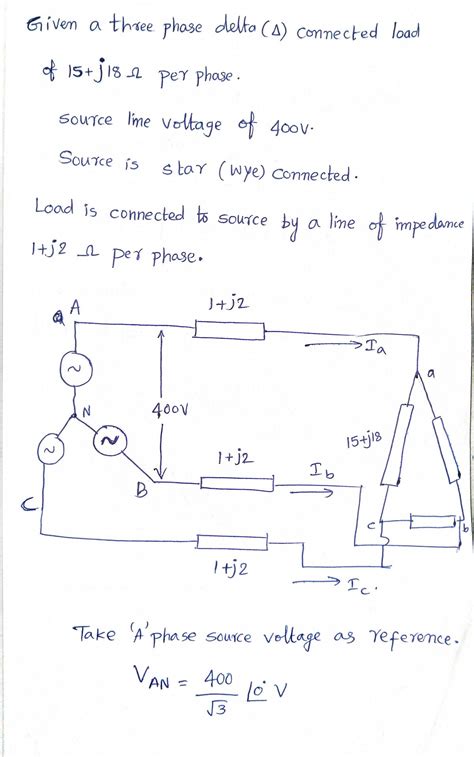 Given a three phase delta (Δ) connected load
of 15+j18 Ω per phase.
source line voltage of 400V.
Source is star (wye) connected.
Load is connected to source by a line of impedance
1+j2 Ω per phase.
A
1+j2
Ia
a
N
400V
15+j18
1+j2
Ib
B
C
c
b
1+j2
Ic.
Take 'A' phase source voltage as reference.
VAN = 400/√3 ∠0° V